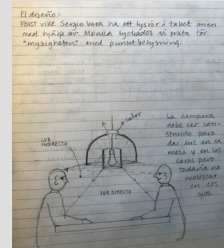 El diseño:
FÖRST ville Sergio bara ha ett lysrör i taket men
med hjälp av Monica lyckades vi prata för
"mysigheten" med punktbelysning.
calor
LUZ
INDIRECTO
LUZ DIRECTO
La lámpara
debe ser con-
struido para
dar luz en la
mesa y en las
caras pero
todavía no
molestar
en los
ojos.